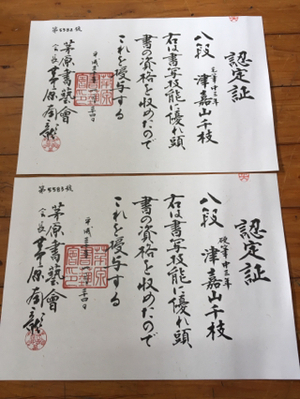 認定証
毛筆中三年
八段 津嘉山千枝
右は書写技能に優れ頭
書の資格を収めたので
これを授与する
平成
茅原書藝會
会長 茅原南龍
認定証
硬筆中三年
八段 津嘉山千枝
右は書写技能に優れ頭
書の資格を収めたので
これを授与する
平成
茅原書藝會
会長 茅原南龍